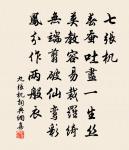 七張機
春蠶吐盡一生絲
莫教容易裁羅綺
無端翦破仙鸞彩鳳
分作兩般衣
九張机詞典 佚名